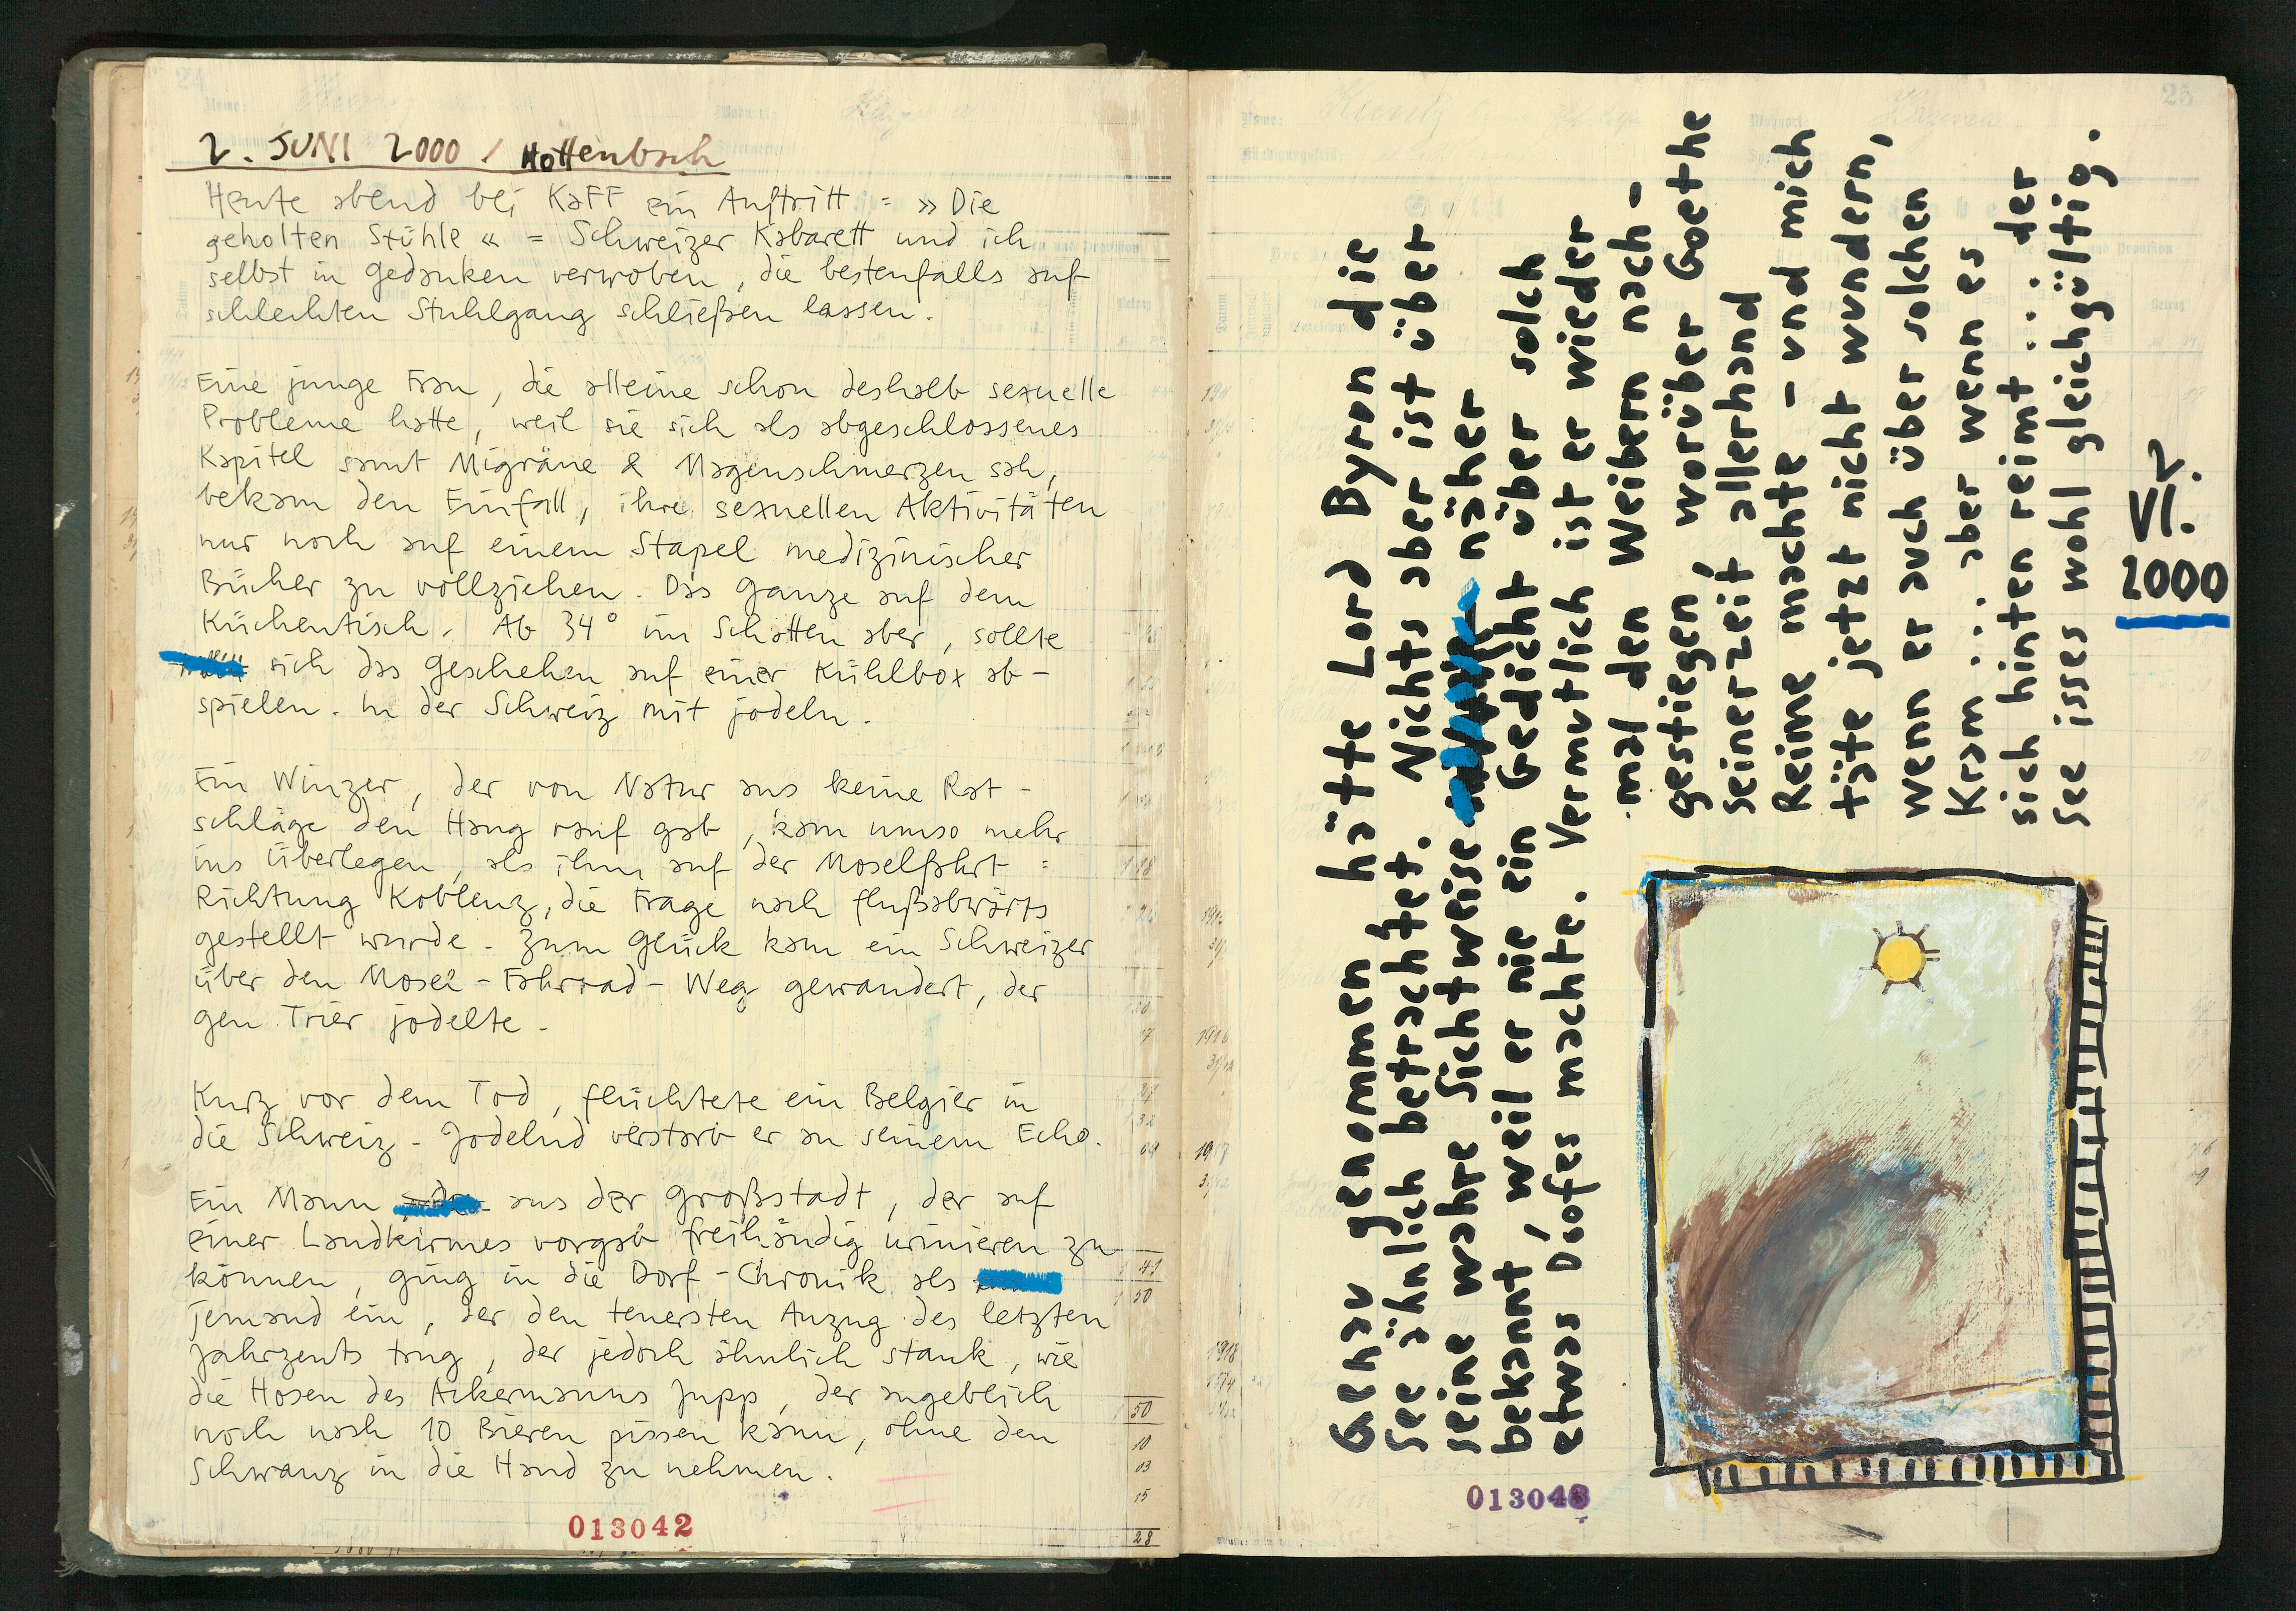 2. JUNI 2000 / Hottenbach
Heute abend bei KaFF ein Auftritt = »Die
geholten Stühle« = Schweizer Kabarett und ich
selbst in gedanken verwoben, die bestenfalls auf
schlechten Stuhlgang schließen lassen.
Eine junge Frau, die alleine schon deshalb sexuelle
Probleme hatte, weil sie sich als abgeschlossenes
Kapitel samt Migräne & Magenschmerzen sah,
bekam den Einfall, ihre sexuellen Aktivitäten
nur noch auf einem Stapel medizinischer
Bücher zu vollziehen. Das ganze auf dem
Küchentisch. Ab 34° im Schatten aber, sollte
sich das geschehen auf einer Kühlbox ab-
spielen. In der Schweiz mit jodeln.
Ein Winzer, der von Natur aus keine Rat-
schläge den Hang rauf gab, kam umso mehr
ins Überlegen, als ihm auf der Moselfahrt =
Richtung Koblenz, die Frage nach flußabwärts
gestellt wurde. Zum glück kam ein Schweizer
über den Mosel-Fahrrad-Weg gewandert, der
gen Trier jodelte.
Kurz vor dem Tod, flüchtete ein Belgier in
die Schweiz. Jodelnd verstarb er an seinem Echo.
Ein Mann aus der großstadt, der auf
einer Landkirmes vorgab freihändig urinieren zu
können, ging in die Dorf-Chronik als
jemand ein, der den teuersten Anzug des letzten
Jahrzents trug, der jedoch ähnlich stank, wie
die Hosen des Ackermanns Jupp, der angeblich
noch nach 10 Bieren pissen kann, ohne den
Schwanz in die Hand zu nehmen.
013042
25
Genau genommen hätte Lord Byron die
See ähnlich betrachtet. Nichts aber ist über
seine wahre Sichtweise näher
bekannt, weil er nie ein Gedicht über solch
etwas Doofes machte. Vermutlich ist er wieder
mal den Weibern nach-
gestiegen, worüber Goethe
seinerzeit allerhand
Reime machte - und mich
täte jetzt nicht wundern,
wenn er auch über solchen
Kram ... aber wenn es
sich hinten reimt ... der
See isses wohl gleichgültig.
2.
VI.
2000